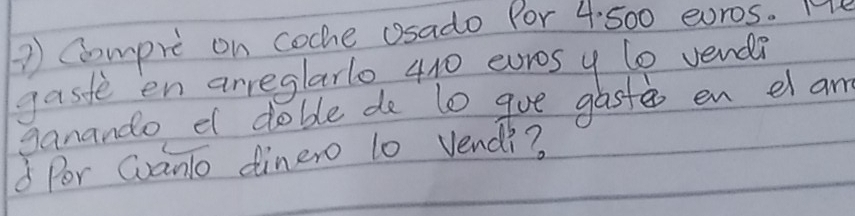 7) Compré un coche usado Por 4.500 euros. Me
gasté en arreglarlo 410 euros y lo vendi
ganando el doble de lo que gasté en el arr
¿ Por Cuanto dinero lo Vendi?